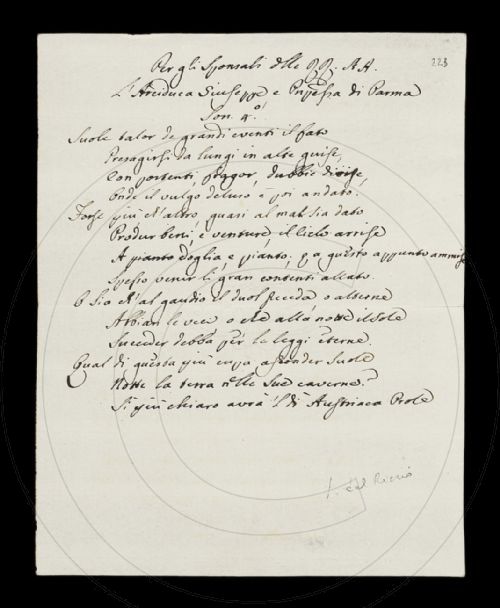 223
Per gli Sponsali delle RR. AA.
L'Arciduca Giuseppe e Pnpessa di Parma
Son. 4.º
Suole talor de grandi eventi il fato
Presagirsi da lungi in altre guise,
Con portenti, dubbie
Onde il vulgo deluso è poi andato.
Forse più ch'altro, quasi al mal sia dato
Produr beni, e venture, il Cielo arrise
A pianto doglia, e pianto; e a questo appunto ammise
Spesso venir li gran contenti allato.
O sia ch'al gaudio il duol preceda, o alterne
Abbian le veci o che alla notte il Sole
Succeder debba per le leggi eterne.
Qual di questa più cupa asconder suole
Notte la terra nelle sue caverne?
Sì più chiaro avrà 'l dì Austriaca Prole